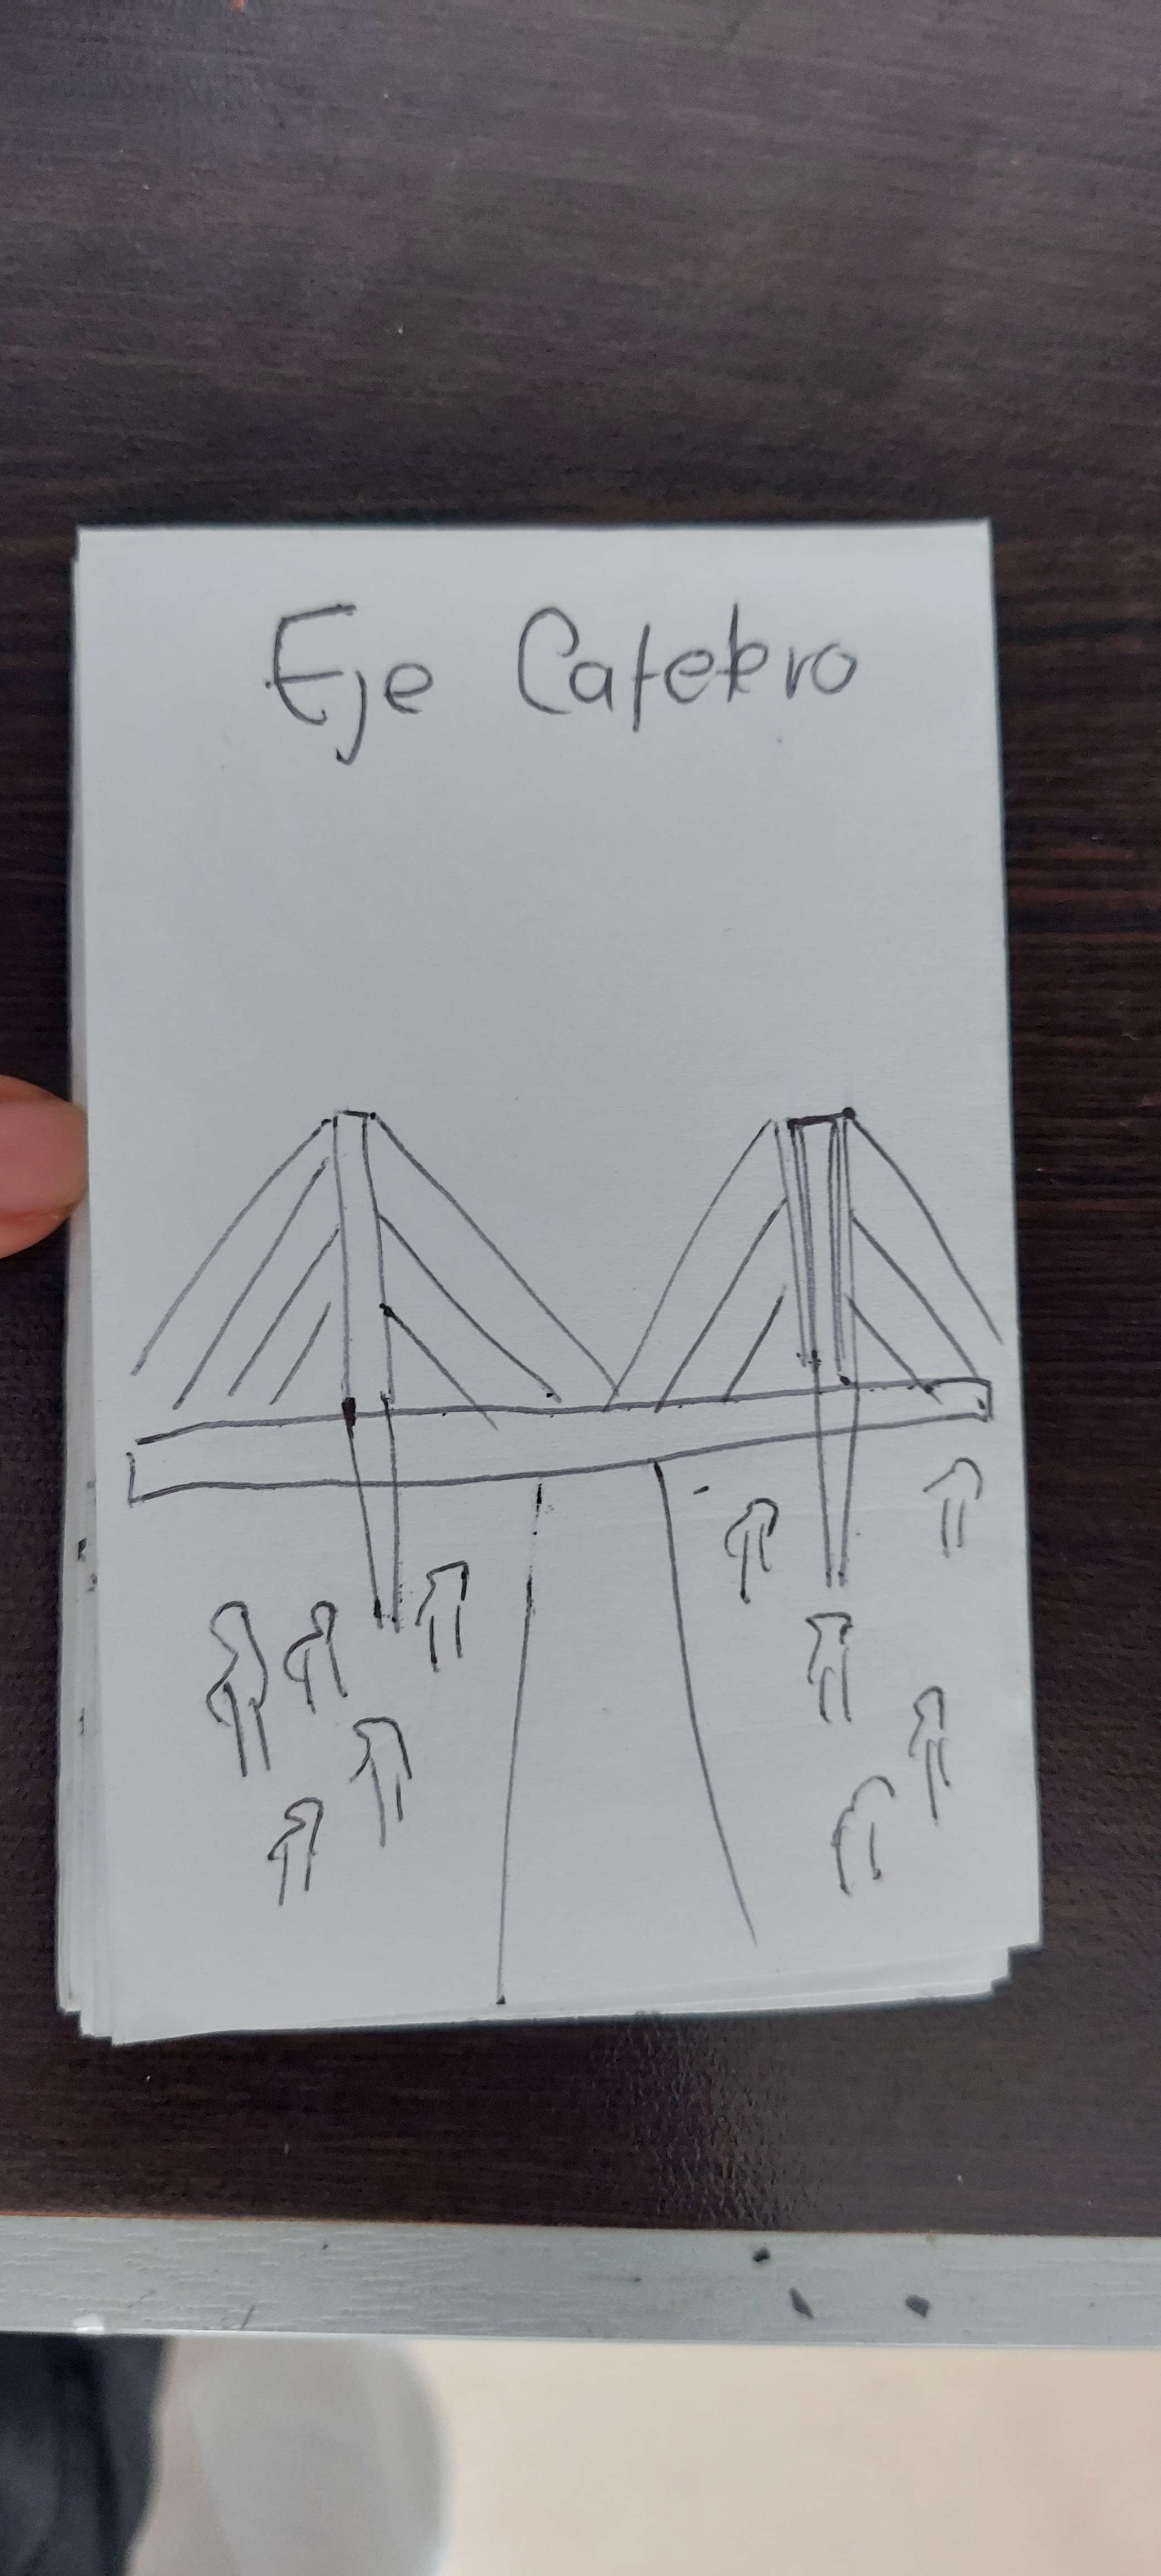 Eje Cafetero